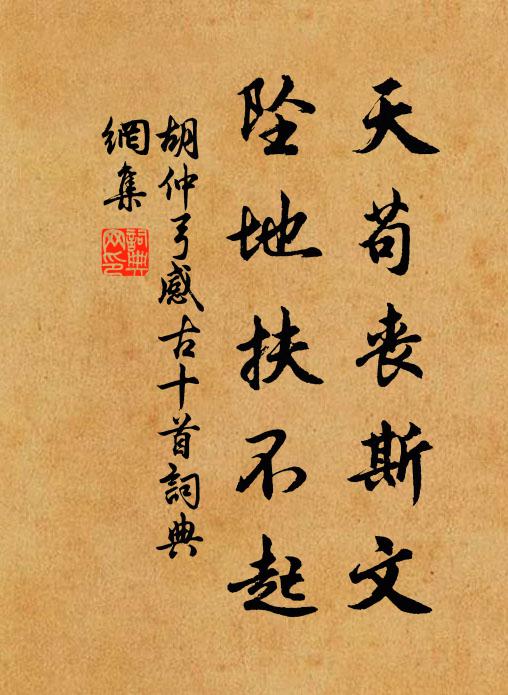 天苟丧斯文
坠地扶不起
胡仲弓感古十首詞典
網集
詞典
网印